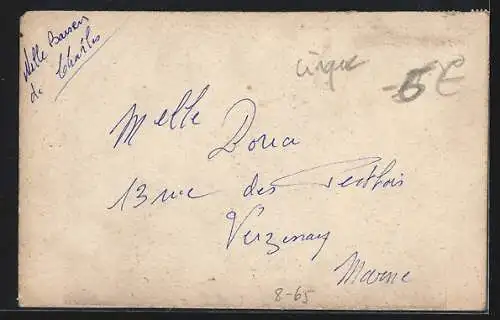 Mille Baisers
de Charles
cirque
5€
Melle Doria
13 rue des Perthois
Verzenay
Marne
8-65